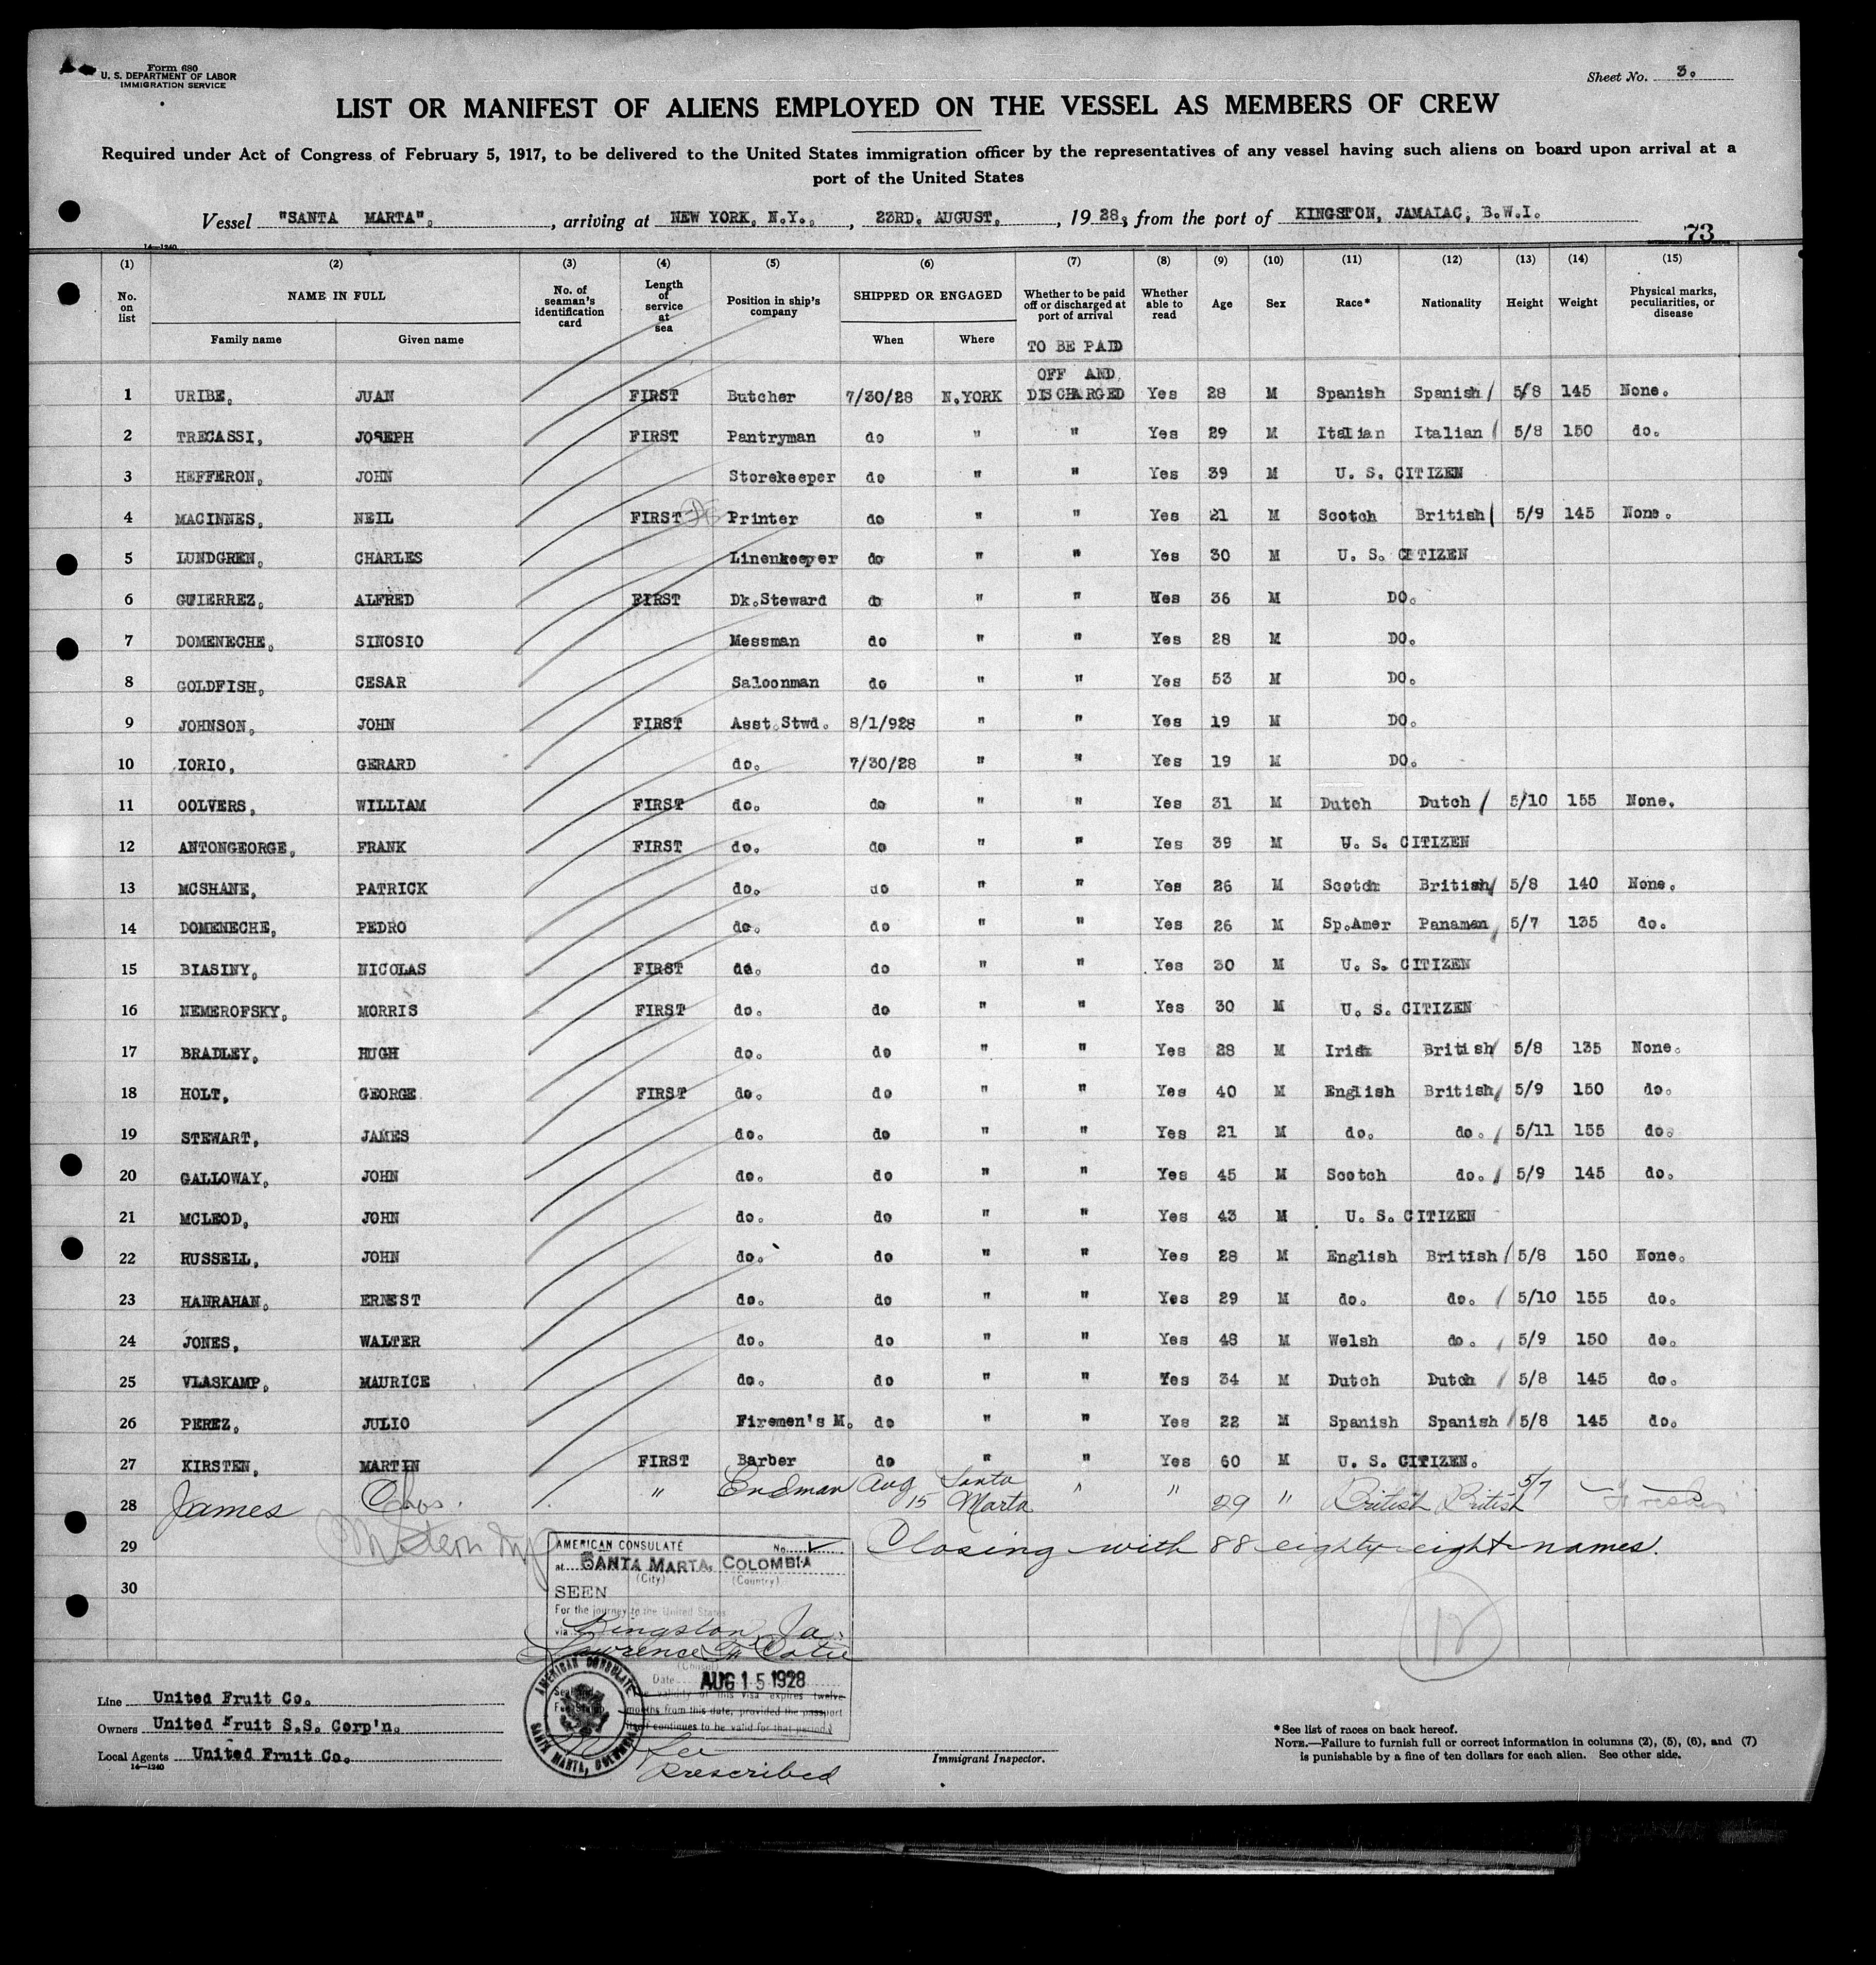 Form 680
U. S. DEPARTMENT OF LABOR
IMMIGRATION SERVICE
Sheet No. 3.
LIST OR MANIFEST OF ALIENS EMPLOYED ON THE VESSEL AS MEMBERS OF CREW
Required under Act of Congress of February 5, 1917, to be delivered to the United States immigration officer by the representatives of any vessel having such aliens on board upon arrival at a
port of the United States
Vessel "SANTA MARTA". , arriving at NEW YORK, N.Y., , 23RD. AUGUST. , 1928, from the port of KINGSTON, JAMAIAC, B.W.I.
73
14—1240
(1) (2) (3) (4) (5) (6) (7) (8) (9) (10) (11) (12) (13) (14) (15)
No. on list NAME IN FULL Family name Given name No. of seaman's identification card Length of service at sea Position in ship's company SHIPPED OR ENGAGED When Where Whether to be paid off or discharged at port of arrival Whether able to read Age Sex Race* Nationality Height Weight Physical marks, peculiarities, or disease
TO BE PAID
OFF AND
1 URIBE, JUAN FIRST Butcher 7/30/28 N.YORK DISCHARGED Yes 28 M Spanish Spanish/ 5/8 145 None.
2 TRECASSI, JOSEPH FIRST Pantryman do " " Yes 29 M Italian Italian/ 5/8 150 do.
3 HEFFERON, JOHN Storekeeper do " " Yes 39 M U. S. CITIZEN
4 MACINNES, NEIL FIRST Printer do " " Yes 21 M Scotch British/ 5/9 145 None.
5 LUNDGREN, CHARLES Linenkeeper do " " Yes 30 M U. S. CITIZEN
6 GUIERREZ, ALFRED FIRST Dk.Steward do " " Yes 36 M DO.
7 DOMENECHE, SINOSIO Messman do " " Yes 28 M DO.
8 GOLDFISH, CESAR Saloonman do " " Yes 53 M DO.
9 JOHNSON, JOHN FIRST Asst.Stwd. 8/1/928 " " Yes 19 M DO.
10 IORIO, GERARD do. 7/30/28 " " Yes 19 M DO.
11 OOLVERS, WILLIAM FIRST do. do " " Yes 31 M Dutch Dutch / 5/10 155 None.
12 ANTONGEORGE, FRANK FIRST do. do " " Yes 39 M U. S. CITIZEN
13 MCSHANE, PATRICK do. do " " Yes 26 M Scotch British/ 5/8 140 None.
14 DOMENECHE, PEDRO do. do " " Yes 26 M Sp.Amer Panaman/ 5/7 135 do.
15 BIASINY, NICOLAS FIRST do. do " " Yes 30 M U. S. CITIZEN
16 NEMEROFSKY, MORRIS FIRST do. do " " Yes 30 M U. S. CITIZEN
17 BRADLEY, HUGH do. do " " Yes 28 M Irish British/ 5/8 135 None.
18 HOLT, GEORGE FIRST do. do " " Yes 40 M English British/ 5/9 150 do.
19 STEWART, JAMES do. do " " Yes 21 M do. do. / 5/11 155 do.
20 GALLOWAY, JOHN do. do " " Yes 45 M Scotch do. / 5/9 145 do.
21 MCLEOD, JOHN do. do " " Yes 43 M U. S. CITIZEN
22 RUSSELL, JOHN do. do " " Yes 28 M English British/ 5/8 150 None.
23 HANRAHAN, ERNEST do. do " " Yes 29 M do. do. / 5/10 155 do.
24 JONES, WALTER do. do " " Yes 48 M Welsh do. / 5/9 150 do.
25 VLASKAMP, MAURICE do. do " " Yes 34 M Dutch Dutch / 5/8 145 do.
26 PEREZ, JULIO Firemen's M. do " " Yes 22 M Spanish Spanish / 5/8 145 do.
27 KIRSTEN, MARTIN FIRST Barber do " " Yes 60 M U. S. CITIZEN.
28 James Chas. " Endman Aug 15 Santa Marta " " 29 " British British 5/7
29 Closing with 88 eighty eight names.
30
AMERICAN CONSULATE No.
at SANTA MARTA, COLOMBIA
(City) (Country)
SEEN
For the journey to the United States
via Kingston, Ja.
(Consul)
Date AUG 15 1928
The validity of this visa expires twelve
months from this date, provided the passport
itself continues to be valid for that period.
AMERICAN CONSULATE
SANTA MARTA, COLOMBIA
No fee
Prescribed
Line United Fruit Co.
Owners United Fruit S.S. Corp'n.
Local Agents United Fruit Co.
14—1240
Immigrant Inspector.
*See list of races on back hereof.
NOTE.—Failure to furnish full or correct information in columns (2), (5), (6), and (7)
is punishable by a fine of ten dollars for each alien. See other side.